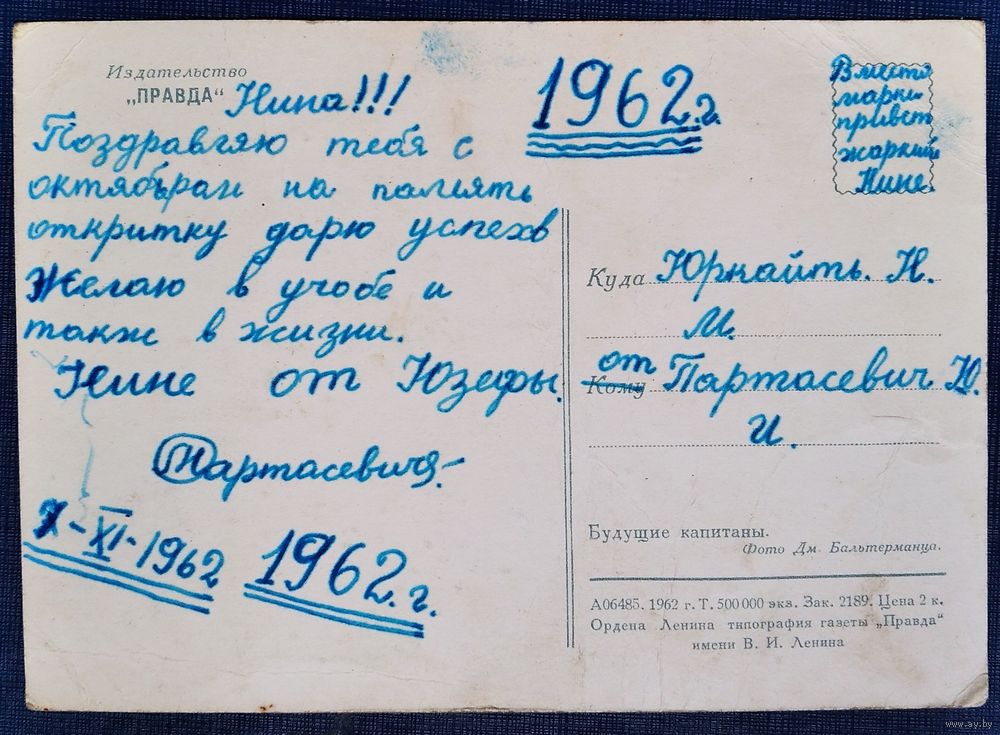 Издательство
„ПРАВДА“
Нина!!!
Поздравляю тебя с
октябрям на память
откритку дарю успехв
Желаю в учобе и
такж в жизни.
Нине от Юзефы.
Партасевичя.
X-XI-1962
1962.г.
1962.г.
Вместо
марки
привет
жаркий
Нине.
Куда Юркайть. Н.
М.
от
Кому Партасевич Ю.
И.
Будущие капитаны.
Фото Дм. Бальтерманца.
А06485. 1962 г. Т. 500 000 экз. Зак. 2189. Цена 2 к.
Ордена Ленина типография газеты „Правда“
имени В. И. Ленина
www.ay.by